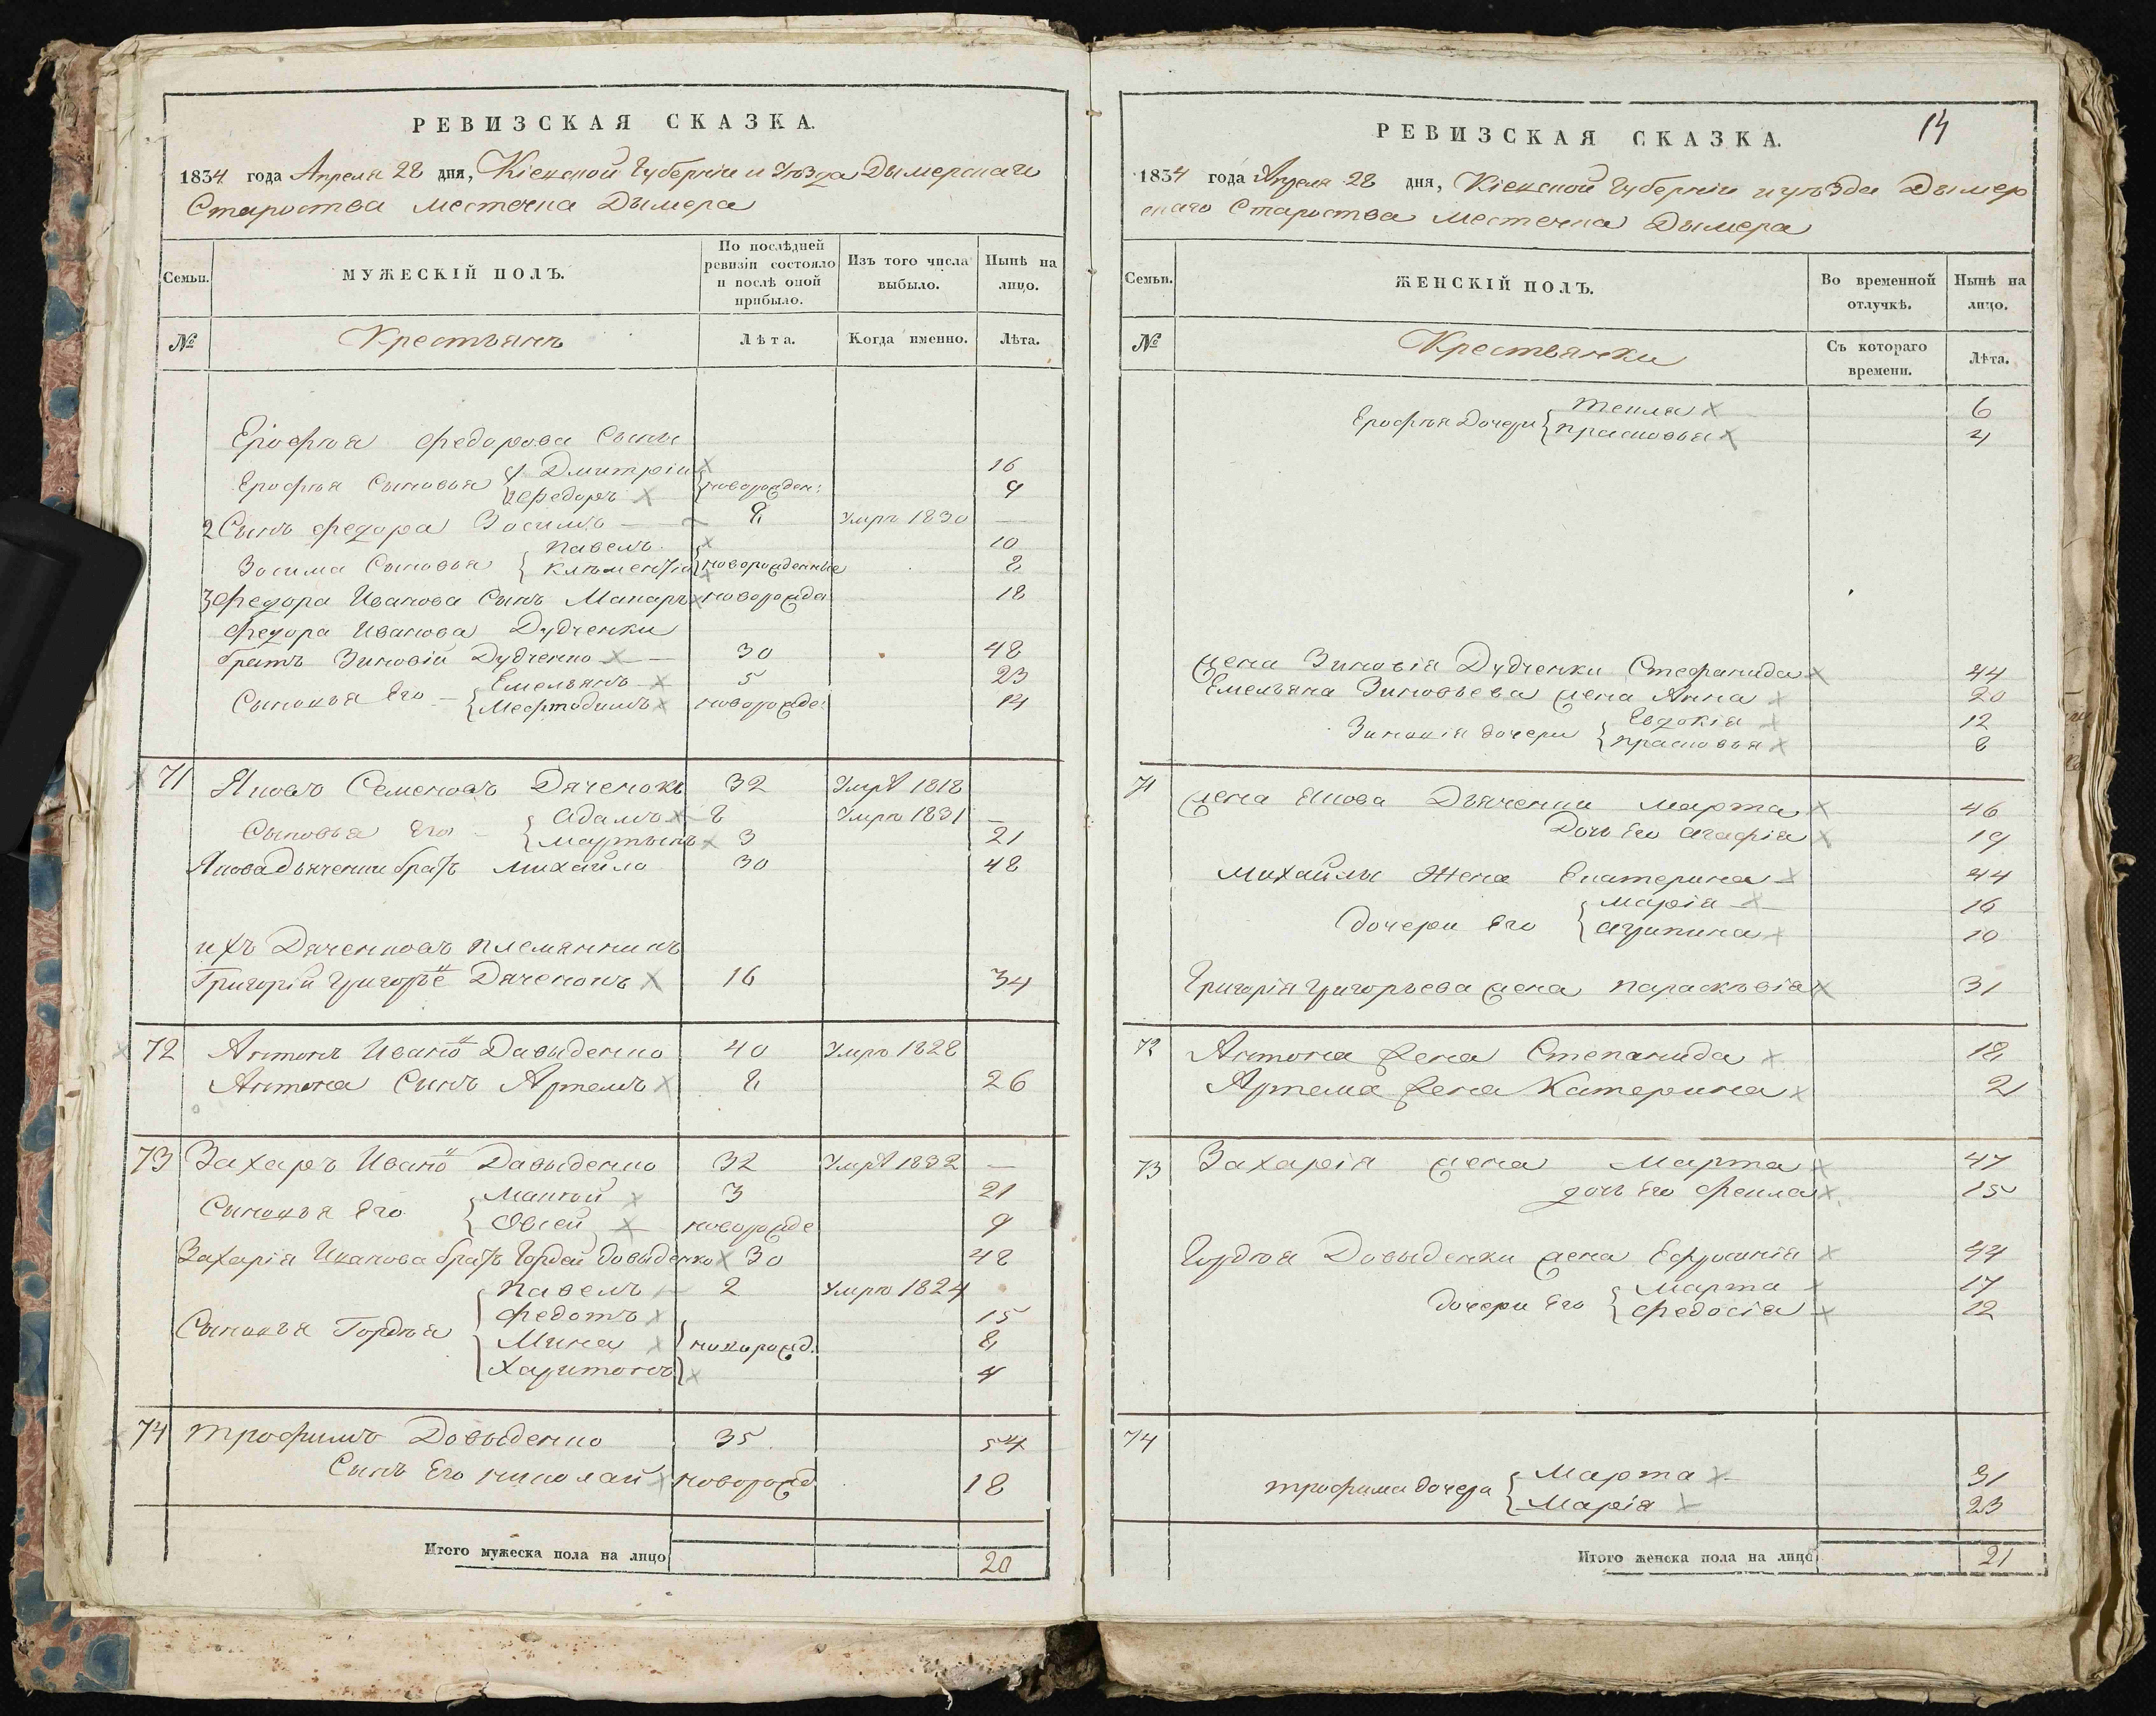 РЕВИЗСКАЯ СКАЗКА.
1834 года Апреля 28 дня, Кіевской Губерніи и Уѣзда Дымерскаго
Староства местечка Дымера
Семьи.
МУЖЕСКІЙ ПОЛЪ.
По послѣдней ревизіи состояло и послѣ оной прибыло.
Изъ того числа выбыло.
Нынѣ на лицо.
№
Крестьянъ
Лѣта.
Когда именно.
Лѣта.
Ерофѣя Федорова Сына
Ерофѣя Сыновья { 1 Дмитріи 16
2 Федоръ новорожден: 9
2 Сынъ Федора Зосимъ — 8 Умре 1830 —
Зосима Сыновья { Павелъ 10
Клѣментіи новорожденные 8
3 Федора Иванова Сынъ Макаръ новорожде 18
Федора Иванова Дудченки
братъ Зиновіи Дудченко 30 48
Сыновья Его { Емельянъ 5 23
Мефтодимъ новорожде: 14
71 Яковъ Семеновъ Дяченокъ 32 Умре 1818
Сыновья Его { Адамъ 8 Умре 1831 —
Мартынъ 3 21
Якова Дьяченки братъ Михайло 30 48
ихъ Дяченковъ племянникъ
Григорій Григорье Дяченокъ 16 34
72 Антонъ Ивано Давыденко 40 Умре 1828
Антона Синъ Артемъ 8 26
73 Захаръ Ивано Давыденко 32 Умре 1832 —
Сыновья Его { 3 21
Овсей новорожде 9
Захарія Иванова братъ Гордей Довыденко 30 48
Сыновья Гордѣя { Павелъ 2 Умре 1824
Федотъ 15
Мина новорожд. 8
Харитонъ 4
74 Трофимъ Довыденко 35 54
Синъ Его николай новорожд 18
Итого мужеска пола на лицо 20
14
РЕВИЗСКАЯ СКАЗКА.
1834 года Апреля 28 дня, Кіевской Губерніи и уѣзда Дымер
скаго Староства Местечка Дымера
Семьи.
ЖЕНСКІЙ ПОЛЪ.
Во временной отлучкѣ.
Нынѣ на лицо.
№
Крестьянки
Съ котораго времени.
Лѣта.
Ерофѣя Дочери { Текля 6
Прасковья 4
жена Зиновія Дудченки Стефанида 44
Емельяна Зиновьева жена Анна 20
Зиновія дочери { Евдокія 12
Прасковья 8
71 жена Якова Дьяченки Марта 46
Дочь Его Агафія 19
Михайлы Жена Екатерина 44
дочери Его { Марія 16
Агрипина 10
Григорія Григорьева жена Параскѣвія 31
72 Антона жена Степанида 18
Артема жена Катерина 21
73 Захарія жена Марта 47
дочь Его Фекла 15
Гордѣя Довыденки жена Ефросинія 44
дочери Его { Марта 17
Федосія 12
74
Трофима дочера { Марта 31
Марія 23
Итого женска пола на лицо 21